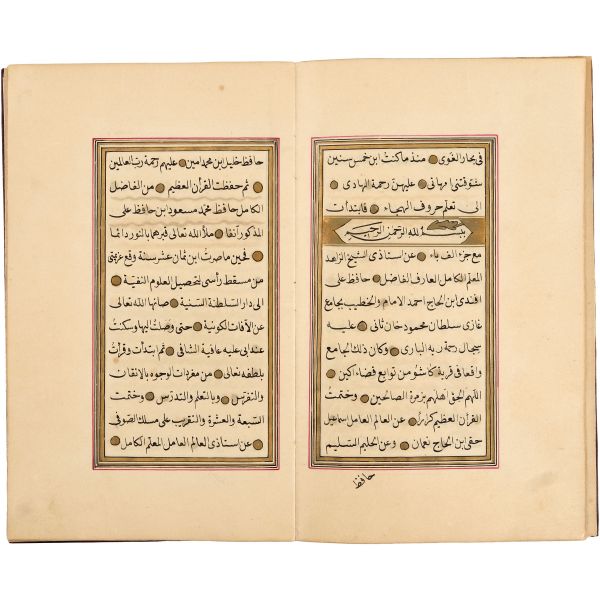 فى بحار الغوى منذ ما كنت ابن خمس سنين
ستوقتنى امهاتى عليهن رحمة الهادى
الى تعلم حروف الهجاء فابتدأت
بسم الله الرحمن الرحيم
مع جزء الف باء عن استاذى الشيخ الزاهد
المعلم الكامل العارف الفاضل حافظ على
افندى ابن الحاج احمد الامام والخطيب بجامع
غازى سلطان محمود خان ثانى عليه
سجال رحمة ربه البارى وكان ذلك الجامع
واقعا فى قرية كاشو من توابع قضاء اكين
اللهم الحق اهلهم بزمرة الصالحين وختمت
القرآن العظيم كرارا عن العالم العامل سماعيل
حقى بن الحاج نعمان وعن الحليم المتسليم
حافظ
حافظ خليل ابن محمد امين عليهم رحمة رب العالمين
ثم حفظت القرأن العظيم من الفاضل
الكامل حافظ محمد مسعود بن حافظ على
المذكور آنفا ملأ الله تعالى قبرهما بالنور دائما
فحين ما صرت ابن ثمان عشر سنة وقع عزيمتى
من مسقط رأسى لتحصيل العلوم النفيسة
الى دار السلطنة السنية صانها الله تعالى
عن الآفات الكونية حتى وصلت اليها وسكنت
عند ابى عليه عافية الشافى ثم ابتدأت وقرأت
بلطفه تعالى من مفردات الوجوه بالاتقان
والتفرس وبالتعلم والتدرس وختمت
السبعة والعشرة والتقريب على مسلك الصوفى
عن استاذى العالم العامل المعلم الكامل